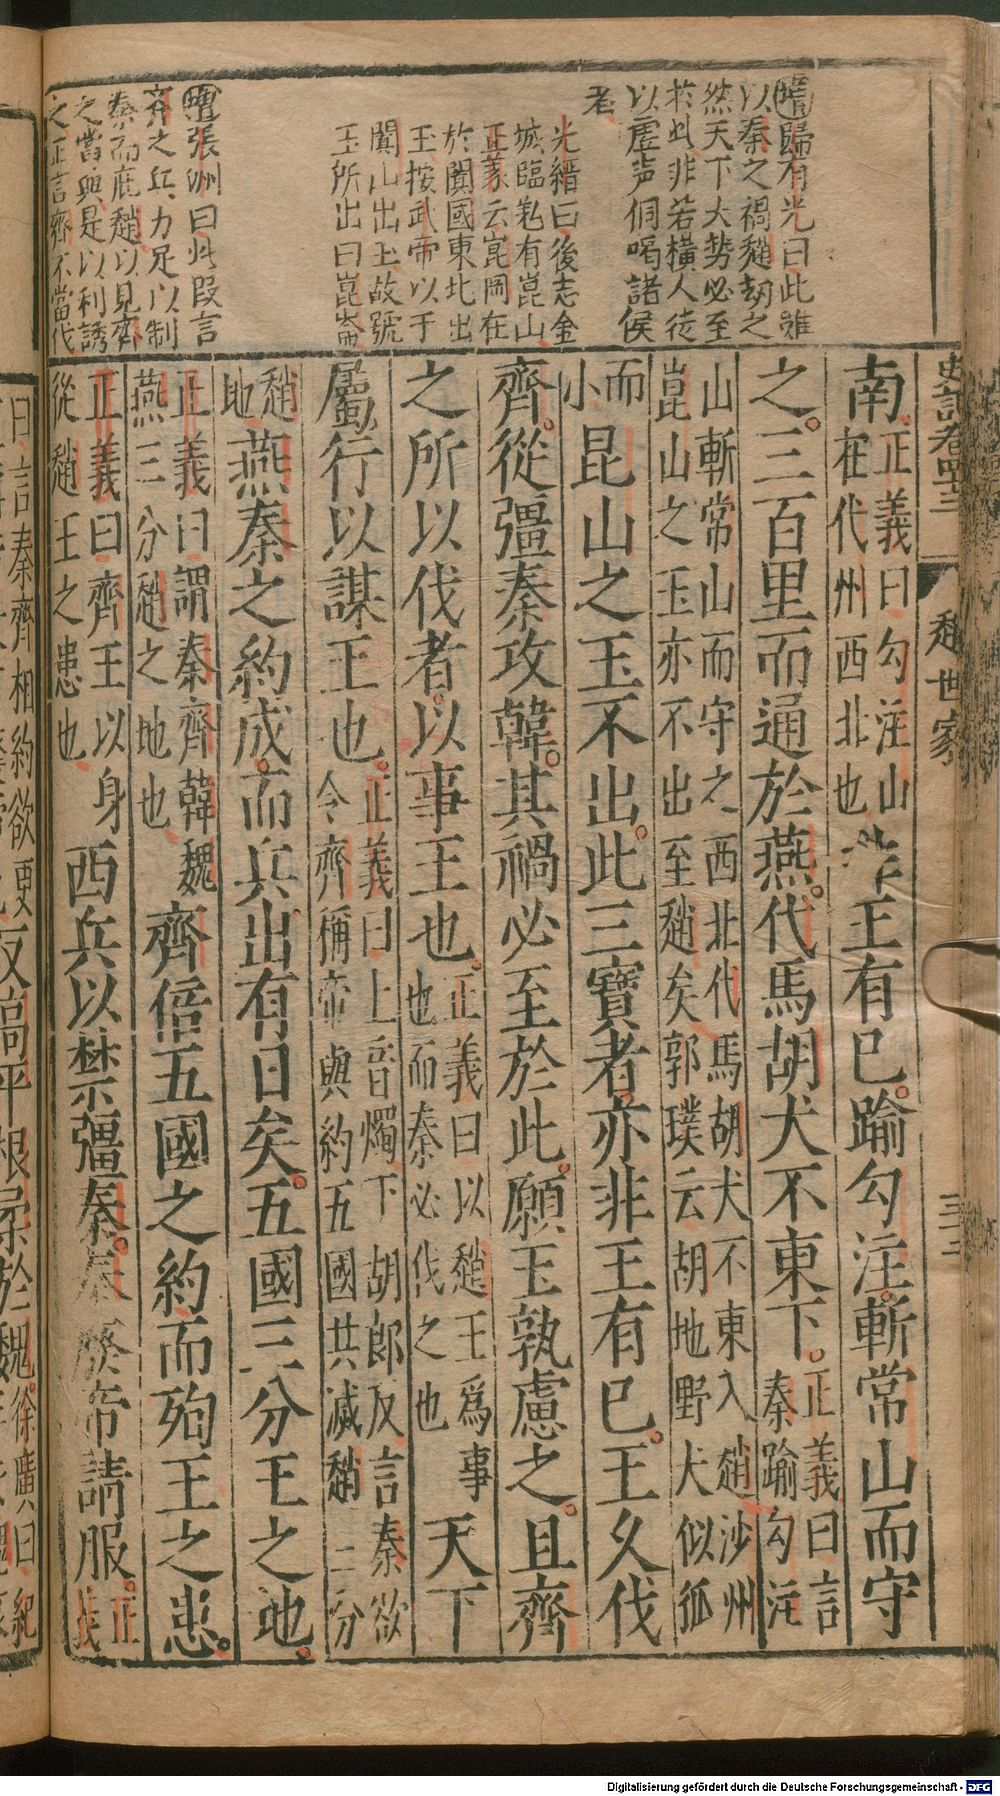 增歸有光曰此雖
以秦之禍趙劫之
然天下大势必至
於此非若橫人徒
以虛声侗喝諸侯
者
光縉曰後志金
城臨羌有崑山
正義云崑岡在
於闐國東北出
玉按武帝以于
闐山出玉故號
玉所出曰崑崙
增張洲曰此段言
齊之兵力足以制
秦而庇趙以見齊
之當與是以利誘
之正言齊不當伐
史記卷四十三
趙世家
三十二
南正義曰勾注山
在代州西北也
非王有巳踰勾注斬常山而守
之三百里而通於燕代馬胡犬不東下正義曰言
秦踰勾注
山斬常山而守之西北代馬胡犬不東入趙沙州
崑山之玉亦不出至趙矣郭璞云胡地野犬似狐
而
小
昆山之玉不出此三寶者亦非王有巳王久伐
齊從彊秦攻韓其禍必至於此願王孰慮之且齊
之所以伐者以事王也正義曰以趙王爲事
也而秦必伐之也
天下
屬行以謀王也正義曰上音燭下胡郎反言秦欲
令齊稱帝與約五國共滅趙三分
趙
地
燕秦之約成而兵出有日矣五國三分王之地
正義曰謂秦齊韓魏
燕三分趙之地也
齊倍五國之約而殉王之患
正義曰齊王以身
從趙王之患也
西兵以禁彊秦秦廢帝請服正
義
曰言秦齊相約欲更
反高平根柔於魏徐廣曰紀
Digitalisierung gefördert durch die Deutsche Forschungsgemeinschaft - DFG